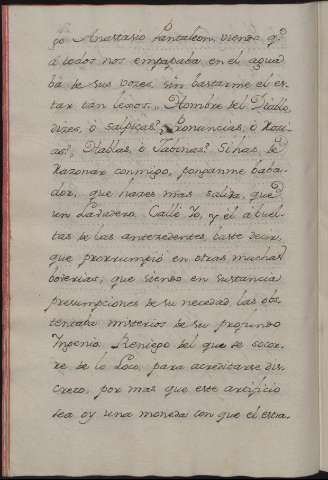 go Anastasio Pantaleon, viendo q.e
à todos nos empapaba en el agua
ba de sus vozes, sin bastarme el es-
tar tan lexos. Hombre del Diablo,
dizes, ò salpicas? Pronuncias, ò Rozi-
as? Hablas, ò Jabonas? Si has de
Razonar conmigo, ponganme baba-
dor, que hazes mas saliba, que
un Lavadero. Callè Yo, y èl a buel-
tas de las antezedentes, baste dezir,
que prorrumpiò en otras muchas
boverias, que siendo en sustancia
presumpciones de su necedad, las obs-
tentaba misterios de su profundo
Ingenio. Reniego del que se socor-
re de lo Loco, para acreditarse dis-
creto, por mas que este artificio
sea oy una moneda con que el estra-